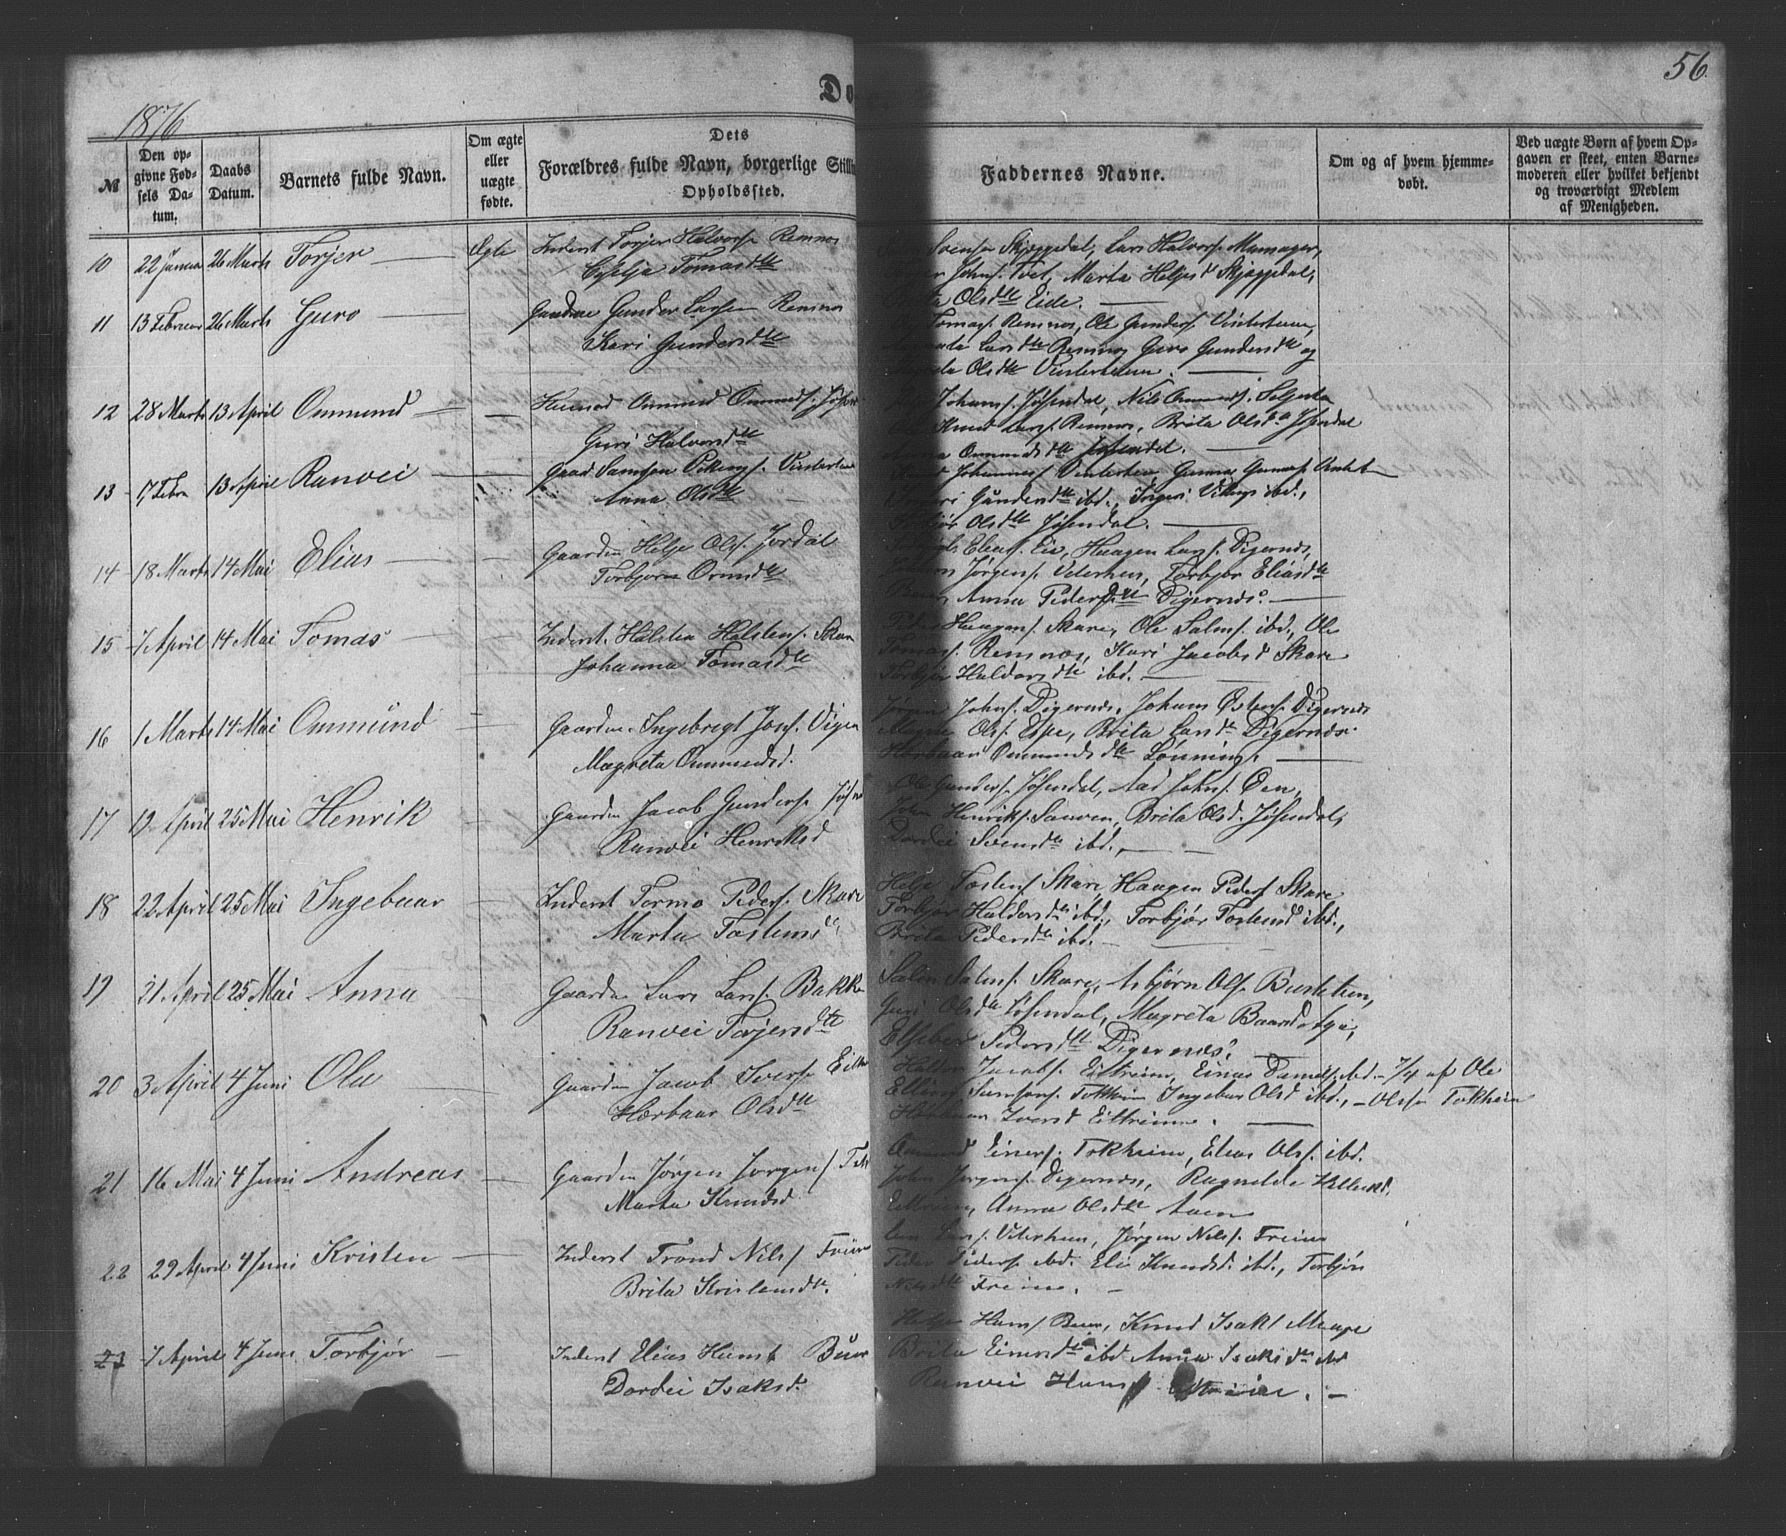 1876
56
Do
№
Den opgivne Fødsels Datum.
Daabs Datum.
Barnets fulde Navn.
Om ægte eller uægte fødte.
Dets Forældres fulde Navn, borgerlige Stilli Opholdssted.
Faddernes Navne.
Om og af hvem hjemmedøbt.
Ved uægte Børn af hvem Opgaven er skeet, enten Barnemoderen eller hvilket bekjendt og troværdigt Medlem af Menigheden.
10 22 Januar 26 Marts Torjer — Ægte Inderst Torjer Halvors. Remnes
Tomasdtr
Svens. Skjeggedal, Lars Halvors. Mannager,
Johns. Tvet, Marta Heljesd Skjeggedal,
Olsdtr Eide. —
11 13 Februar 26 Marts Guro — Gunder Larsen Remnes
Kari Gundersdtr
Tomas. Remnes, Ole Gunders. Vintertun,
Larsdtr Remnes, Guro Gundersdtr og
Olsdtr Vintertun. —
12 28 Marts 13 April Ommund — Huusmd Ommund Ommunds.
Guri Halvorsdtr
Johans. Jøsendal, Nils Ommunds.
Knud Lars. Remnes, Brita Olsdtr Jøsendal
Anna Ommundsdtr Jøsendal. —
13 17 Febr 13 April Ranvei — Gaard Samson Vikings. Vintertun
Anna Olsdtr
Johannes. Vintertun, Gunnar Gunnars.
Gundersdtr ibd., Vikings ibd.,
Torbjør Olsdtr Jøsendal. —
14 18 Marts 14 Mai Elias — Gaardm Helje Ols. Jordal
Torbjørn Ormsdtr
Elias. Eie, Haagen Lars. Digernes,
Jørgens. Veterhus, Torbjør Eliasdtr
Anna Pedersdtr Digernes. —
15 7 April 14 Mai Tomas — Inderst. Halsten Halstens. Skare
Johanna Tomasdtr
Peder Haagens. Skare, Ole Salms. ibd., Ole
Tomas. Remnes, Kari Jacobsd Skare
Torbjør Haldorsdtr ibd. —
16 1 Marts 14 Mai Ommund — Gaardm. Ingebrigt Jons. Digern
Magreta Ommundsd.
Jørgen Johns. Digernes, Johans Østens. Digernes
Magne Ols. Espe, Brita Larsdtr Digernes.
Herbaar Ommundsdtr Lønning. —
17 12 April 25 Mai Henrik Gaardm Jacob Gunders. Jøsen
Ranvei Henriksd
Ole Gunders. Jøsendal, Aad Johns. Øen,
John Henriks. Sauven, Brita Olsd. Jøsendal,
Dordei Svensdtr ibd., —
18 22 April 25 Mai Ingebaar — Inderst Tormo Peders. Skare
Marta Tostens
Helje Tostens. Skare, Haagen Peders. Skare
Torbjør Haldorsdtr ibd., Torbjør Tostensd ibd.,
Brita Pedersdtr ibd. —
19 21 April 25 Mai Anna Gaardm Lars Lars. Bakke
Ranvei Torjersdtr
Salm Salms. Skare, Asbjørn Ols. Bustetun,
Guri Olsdtr Jøsendal, Magreta Baardsd Aga,
Elsebet Pedersdtr Digernes. —
20 3 April 4 Juni Ola Gaardm Jacob Ivers. Eitr
Herbaar Olsdtr
Haldor Jacobs. Eitreim, Einar Daniels. ibd. — 7/4 af Ole
Elling Samsons. Tokheim Ingebor Olsd ibd., — Olsen Tokheim
Herbaar Iversd Eitreim. —
21 16 Mai 4 Juni Andreas — Gaardm Jørgen Jørgens. Tok
Marta Knudsd
Aamund Einers. Tokheim, Elias Ols. ibd.
John Jørgens. Digernes, Ragnilde
Eitreim, Anna Olsdtr
22 29 April 4 Juni Kristen — Inderst Trond Nils. Freim
Brita Kristensdtr.
Lars. Veterhus, Jørgen Nils. Freim
Peder Peders. ibd. Eli Knudsd. ibd., Torbjør
Nilsdtr Freim. —
23 7 April 4 Juni Torbjør — Inderst Elias Hans. Buar
Dordei Isaksd.
Helje Hans. Buar, Knud Isaks. Mauge
Brita Einersdtr ibd Anna Isaksdtr ibd
Ranvei Hans Eitreim. —